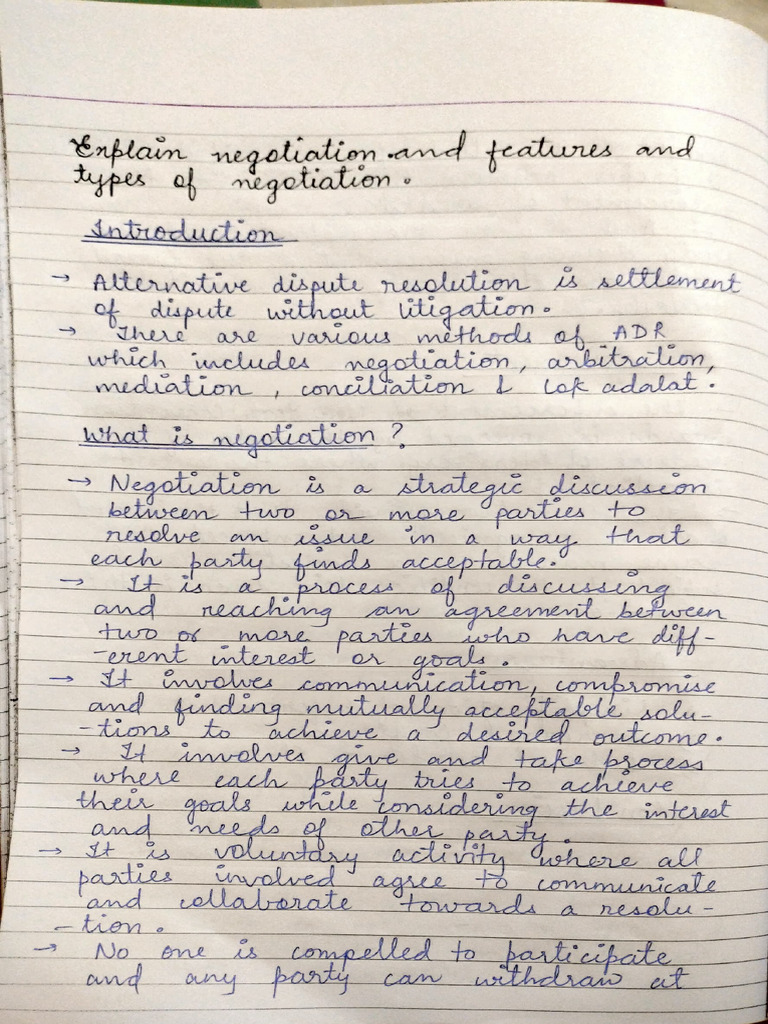 Explain negotiation and features and
types of negotiation.
Introduction
→ Alternative dispute resolution is settlement
of dispute without litigation.
→ There are various methods of ADR
which includes negotiation, arbitration,
mediation, conciliation & lok adalat.
What is negotiation?
→ Negotiation is a strategic discussion
between two or more parties to
resolve an issue in a way that
each party finds acceptable.
→ It is a process of discussing
and reaching an agreement between
two or more parties who have diff-
-erent interest or goals.
→ It involves communication, compromise
and finding mutually acceptable solu-
-tions to achieve a desired outcome.
→ It involves give and take process
where each party tries to achieve
their goals while considering the interest
and needs of other party.
→ It is voluntary activity where all
parties involved agree to communicate
and collaborate towards a resolu-
-tion.
→ No one is compelled to participate
and any party can withdraw at